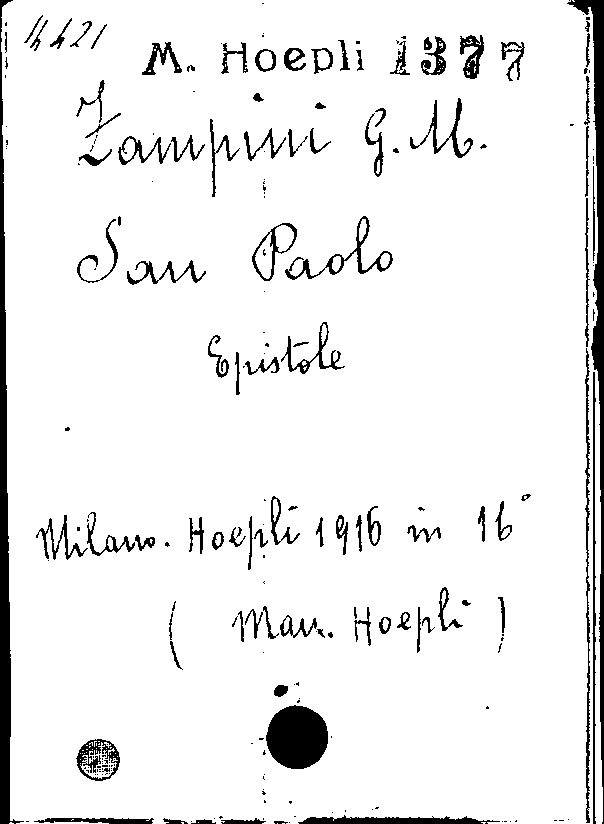 14421
M. Hoepli 1377
Zampini G. M.
San Paolo
Epistole
Milano. Hoepli 1916 in 16°
( Man. Hoepli )